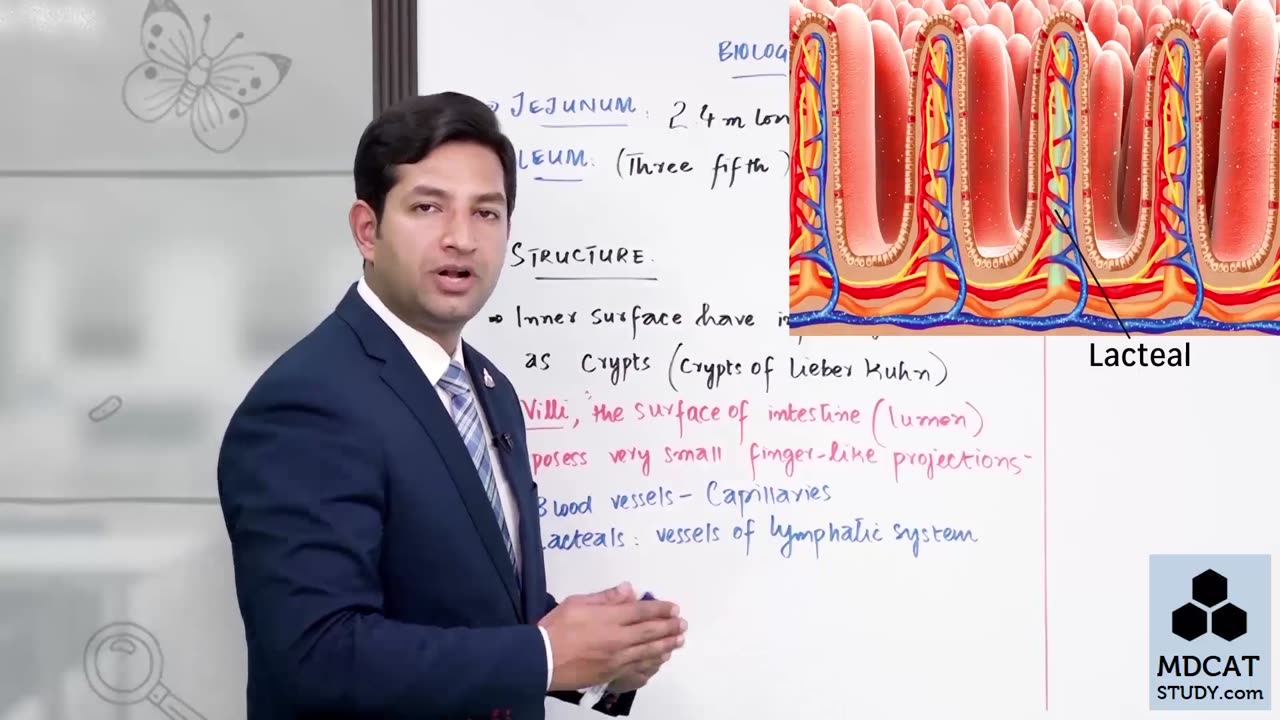 BIOLOG
JEJUNUM: 2 4 m lon
LEUM: (Three fifth)
STRUCTURE.
Inner surface have
as Crypts (Crypts of Lieber Kuhn)
Villi, the surface of intestine (lumen)
posess very small finger-like projections-
Blood vessels - Capillaries
Lacteals: vessels of lymphatic system
Lacteal
MDCAT
STUDY.com